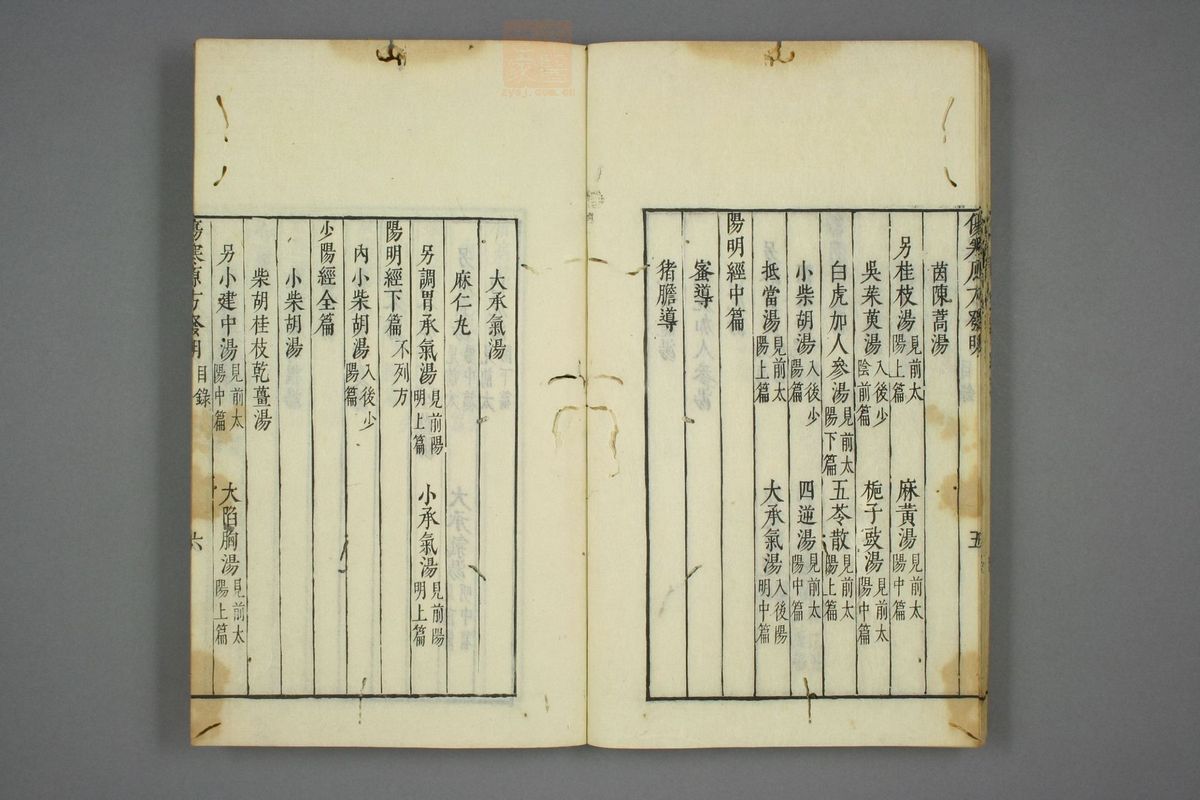 茵陳蒿湯
另桂枝湯見前太陽上篇 麻黃湯見前太陽中篇
吳茱萸湯入後少陰前篇 梔子豉湯見前太陽中篇
白虎加人參湯見前太陽下篇 五苓散見前太陽上篇
小柴胡湯入後少陽篇 四逆湯見前太陽中篇
抵當湯見前太陽上篇 大承氣湯入後陽明中篇
陽明經中篇
蜜導
猪膽導
五
大承氣湯
麻仁丸
另調胃承氣湯見前陽明上篇 小承氣湯見前陽明上篇
陽明經下篇不列方
內小柴胡湯入後少陽篇
少陽經全篇
小柴胡湯
柴胡桂枝乾薑湯
另小建中湯見前太陽中篇 大陷胸湯見前太陽上篇
傷寒原方發明 目錄 六
zysj.com.cn